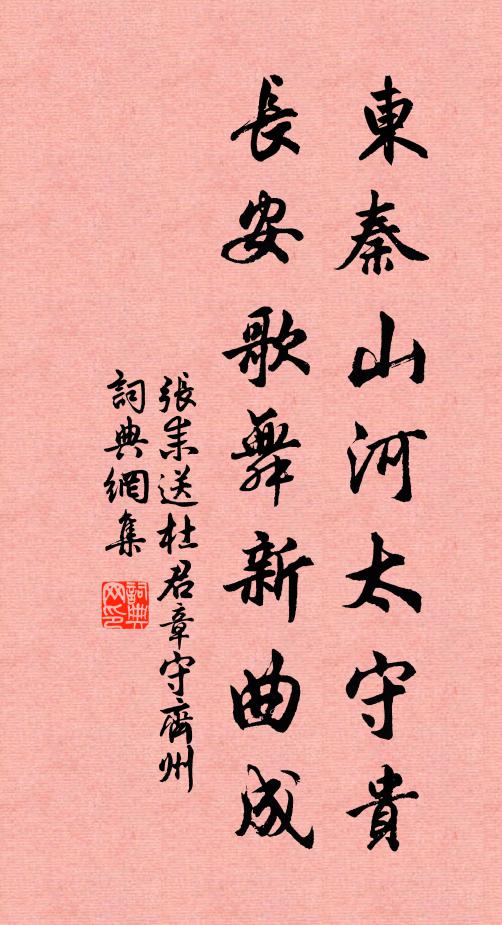 東秦山河太守貴
長安歌舞新曲成
張耒送杜君章守齊州
詞典網集
詞典
网印